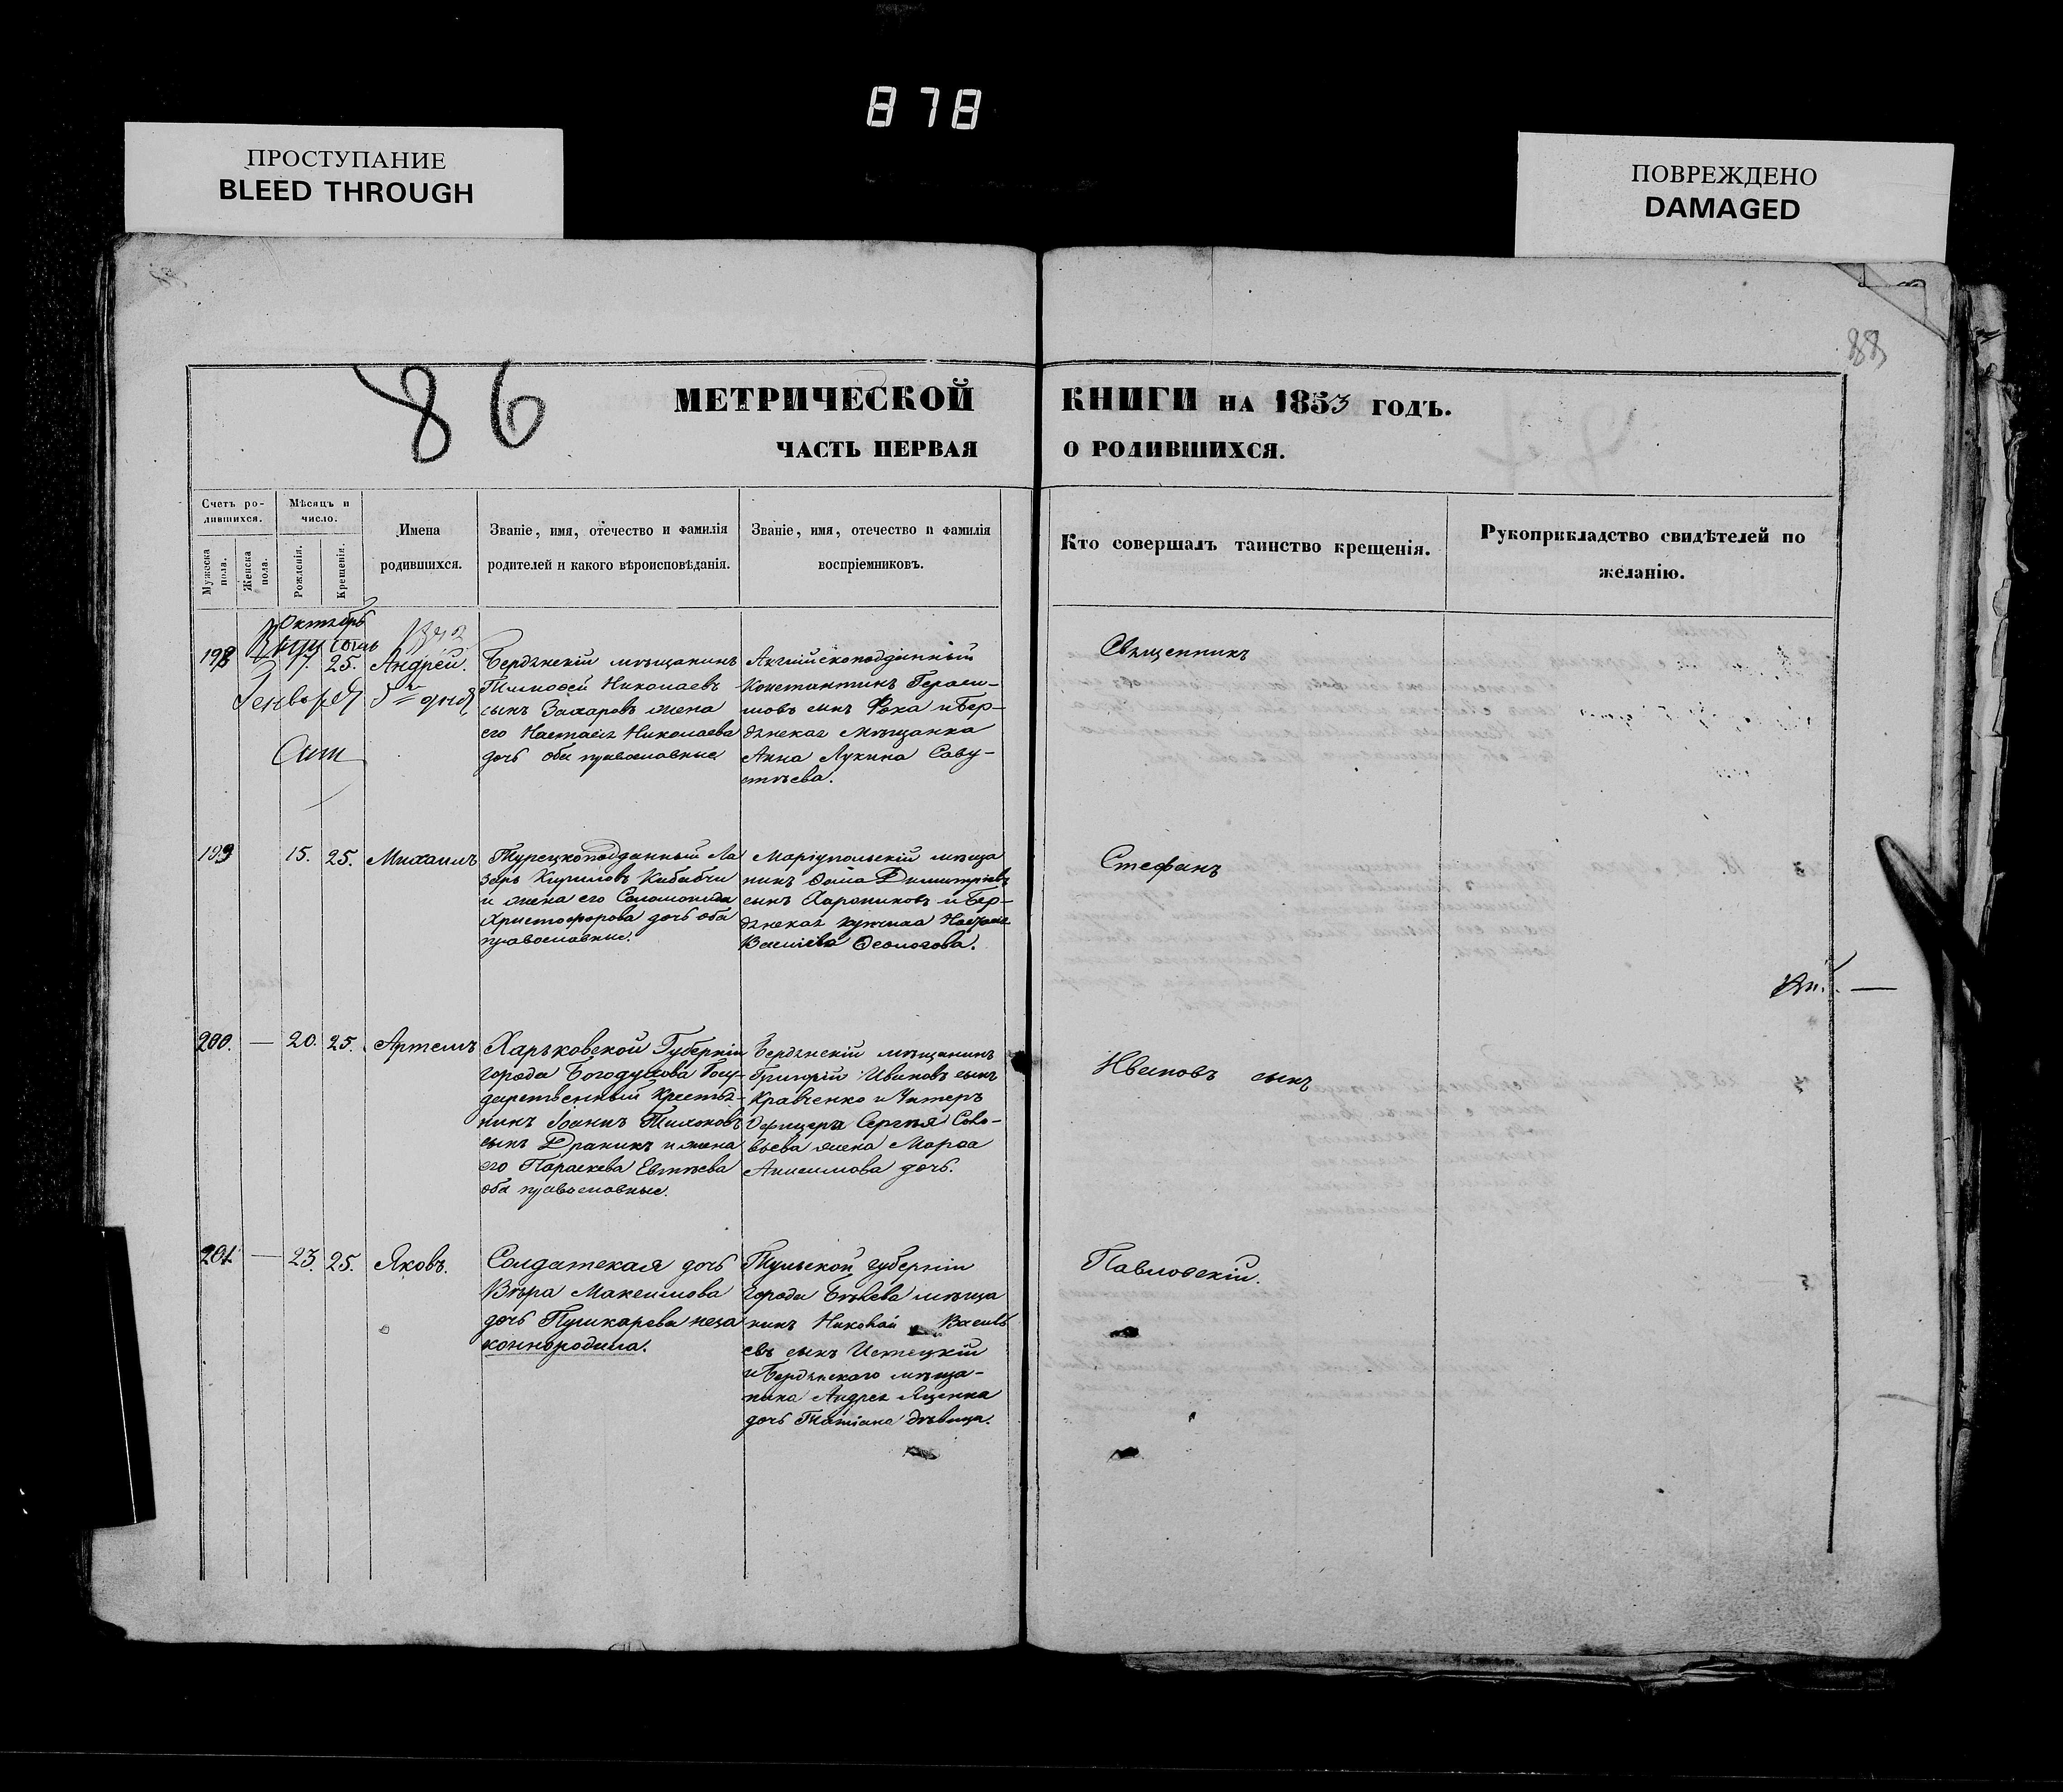 878
ПРОСТУПАНИЕ
BLEED THROUGH
ПОВРЕЖДЕНО
DAMAGED
88
86
МЕТРИЧЕСКОЙ КНИГИ НА 1853 ГОДЪ.
ЧАСТЬ ПЕРВАЯ О РОДИВШИХСЯ.
Счетъ ро-
дившихся.
Мужеска пола.
Женска пола.
Мѣсяцъ и
число.
Рожденія.
Крещенія.
Имена
родившихся.
Званіе, имя, отечество и фамилія
родителей и какого вѣроисповѣданія.
Званіе, имя, отечество и фамилія
воспріемниковъ.
Кто совершалъ таинство крещенія.
Рукоприкладство свидѣтелей по
желанію.
Октябрь
198
17. 25. Андрей.
Генваря 5 дня
Бердянскій мѣщанинъ
Тимоѳей Николаевъ
сынъ Захаровъ жена
его Настасія Николаева
дочь оба православные
Англійскоподданный
Константинъ Гераси-
мовъ сынъ Фока и Бер-
дянская мѣщанка
Анна Лукина Саву-
стьева.
Священникъ
199
15. 25. Михаилъ
Турецкоподданный Ла
зарь Кириловъ Кибабчи
и жена его Саломонида
Христофорова дочь оба
православные.
Маріупольскій мѣща
нинъ Ѳома Димитріевъ
сынъ Хараниковъ и Бер-
дянская
Васильева Ѳеологова.
Стефанъ
200. — 20. 25. Артемъ
Харьковской Губерніи
города Богодухова Госу-
дарственный крестья-
нинъ Іоаннъ Тихоновъ
сынъ Драникъ и жена
его Параскева Евтѣева
оба православные.
Бердянскій мѣщанинъ
Григорій Ивановъ сынъ
Кравченко и Унтеръ
Офицера Сергѣя Соло-
вьева жена Марѳа
Анисимова дочь.
Ивановъ сынъ
201 — 23. 25. Яковъ.
Солдатская дочь
Вѣра Максимова
дочь Пушкарева неза
коннорожила.
Тульской губерніи
города Бѣлева мѣща
нинъ Николай Василь
евъ сынъ Истецкій
и Бердянского мѣща-
нина Андрея Яценка
дочь Татіана дѣвица.
Павловскій.